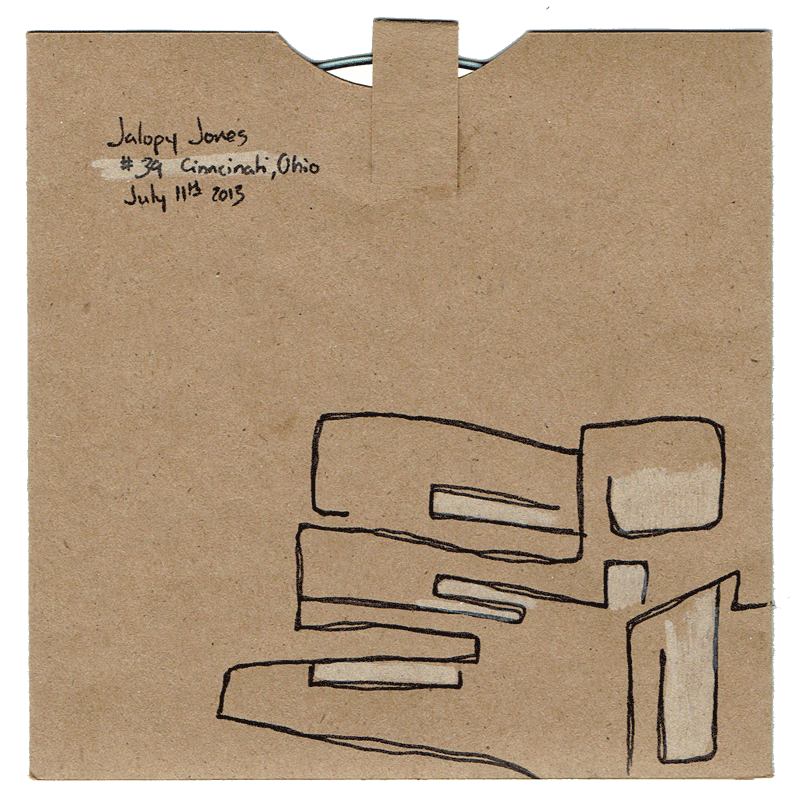 Jalopy Jones
#39 Cinncinati, Ohio
July 11th 2013